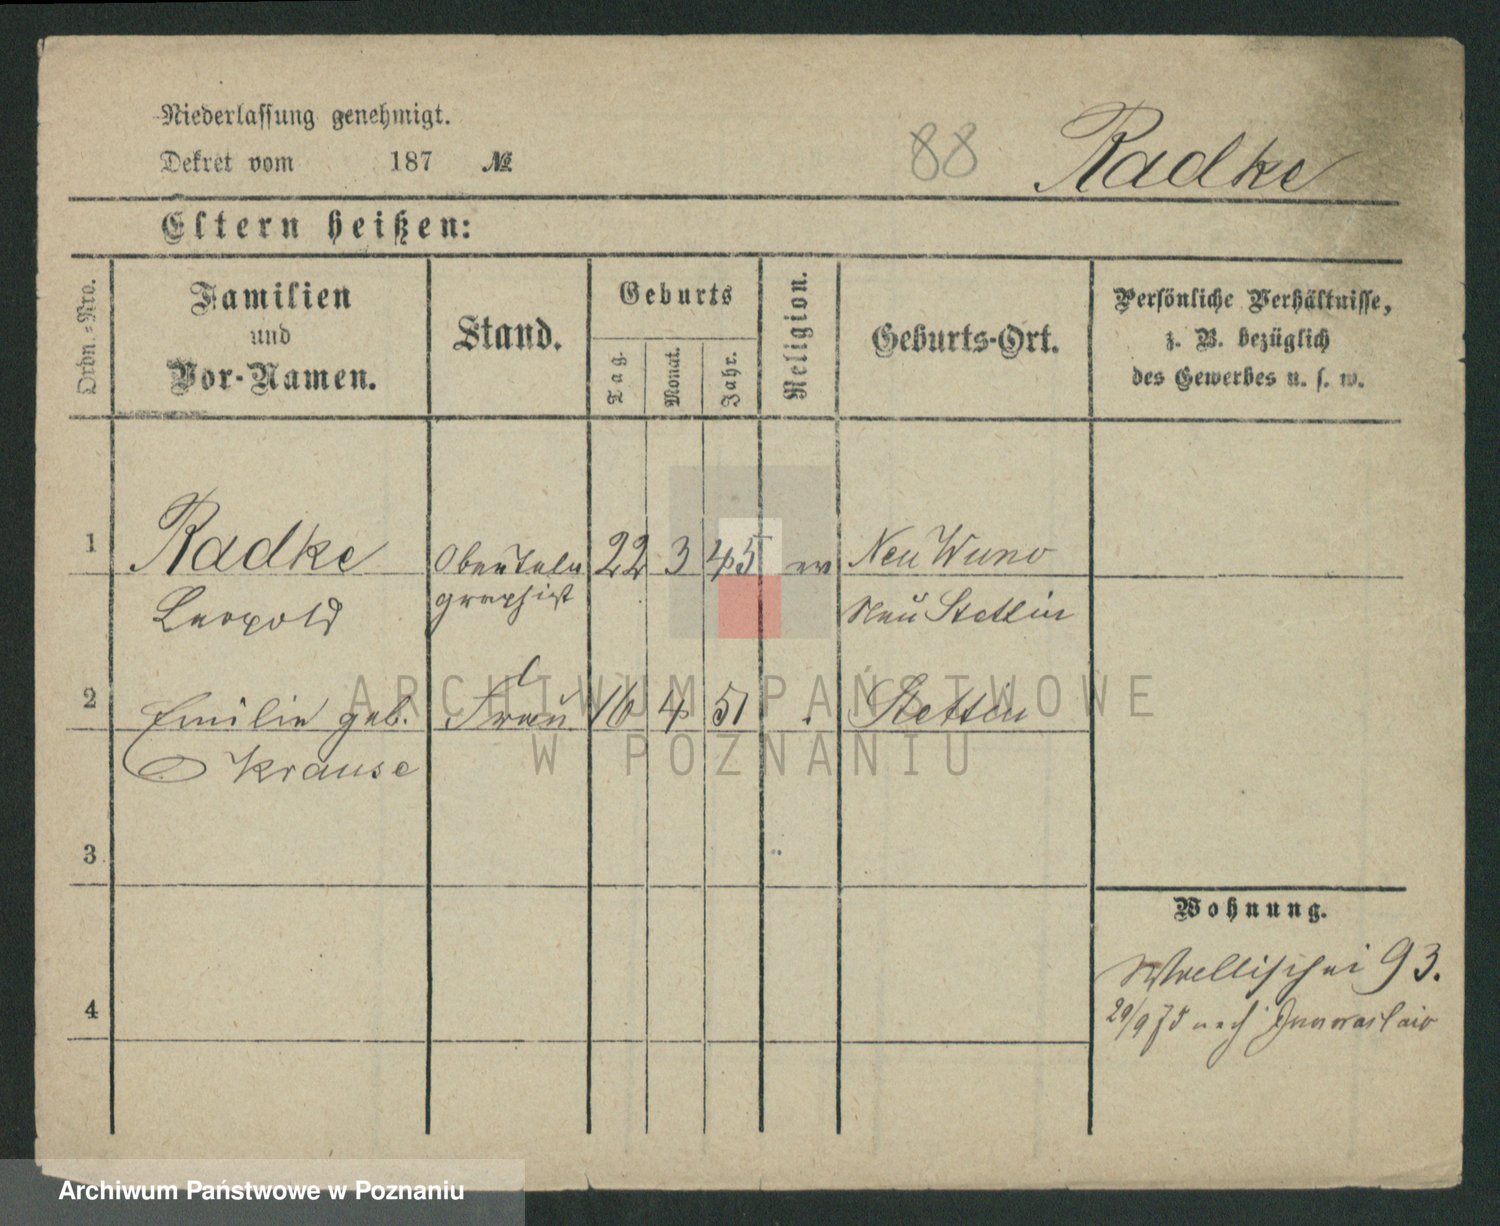 Niederlassung genehmigt.
Dekret vom 187 №
88
Radke
Eltern heißen:
Ordn.-Nro.
Familien
und
Vor-Namen.
Stand.
Geburts
Tag.
Monat.
Jahr.
Religion.
Geburts-Ort.
Persönliche Verhältnisse,
z. B. bezüglich
des Gewerbes u. s. w.
1 Radke Obertele 22 3 45 ev Neu Wuno
Leopold graphist Neu Stettin
2 Emilie geb. Frau 16 4 51 Stettin
Krause
3
4
Wohnung.
Wallischei 93.
29/9 75 nach Inowraslaw
ARCHIWUM PAŃSTWOWE
W POZNANIU
Archiwum Państwowe w Poznaniu